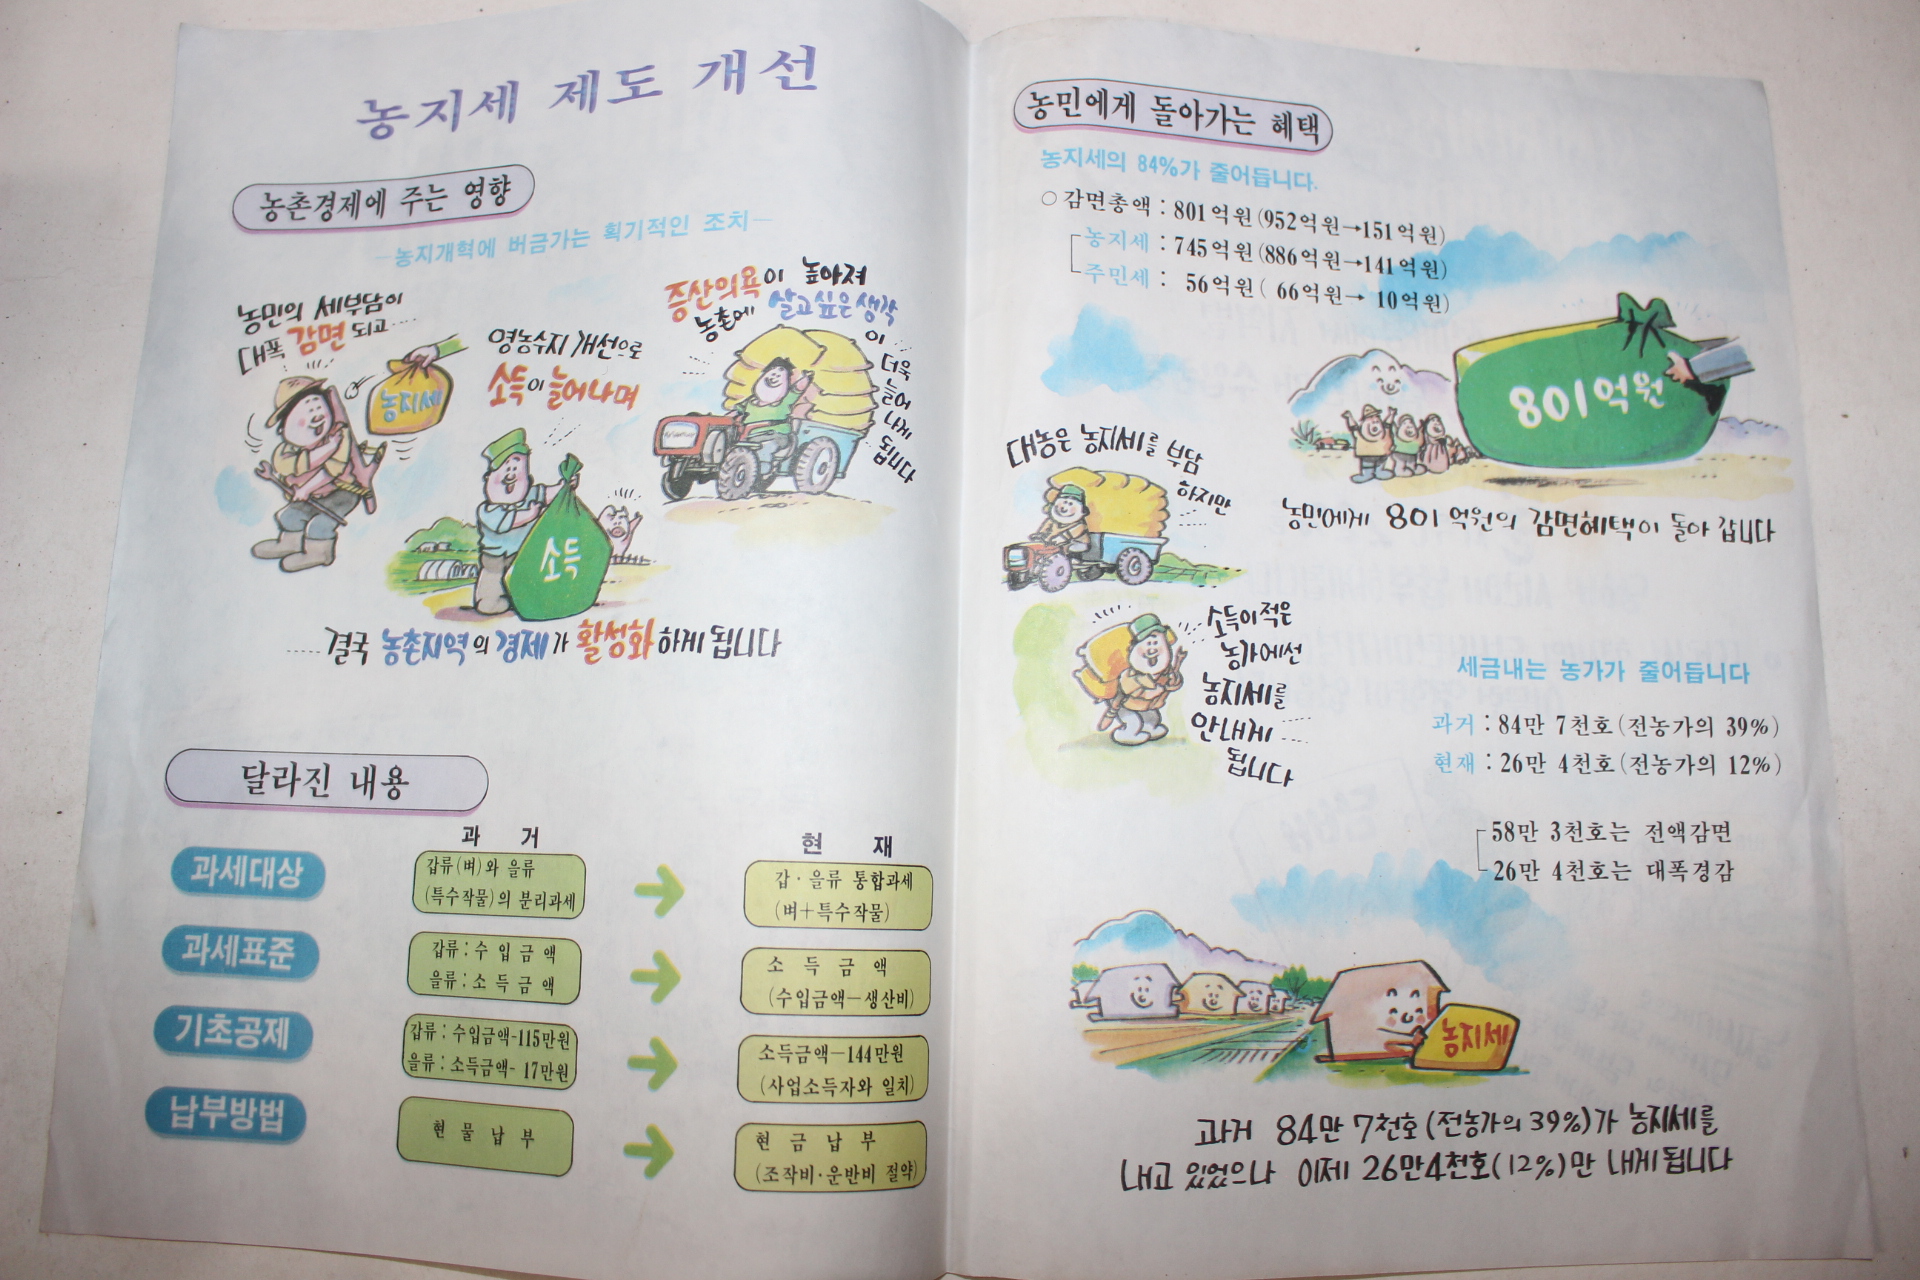 농지세 제도 개선
농촌경제에 주는 영향
—농지개혁에 버금가는 획기적인 조치—
농민의 세부담이
대폭 감면되고……
농지세
영농수지 개선으로
소득이 늘어나며
소득
증산의욕이 높아져
농촌에 살고싶은 생각
이……
더욱
늘어
나게
됩니다
……결국 농촌지역의 경제가 활성화하게 됩니다
달라진 내용
과 거
현 재
과세대상
갑류(벼)와 을류
(특수작물)의 분리과세
갑·을류 통합과세
(벼+특수작물)
과세표준
갑류:수 입 금 액
을류:소 득 금 액
소 득 금 액
(수입금액—생산비)
기초공제
갑류:수입금액-115만원
을류:소득금액- 17만원
소득금액—144만원
(사업소득자와 일치)
납부방법
현 물 납 부
현 금 납 부
(조작비·운반비 절약)
농민에게 돌아가는 혜택
농지세의 84%가 줄어듭니다.
○감면총액:801억원(952억원→151억원)
농지세:745억원(886억원→141억원)
주민세: 56억원( 66억원→ 10억원)
801억원
농민에게 801억원의 감면혜택이 돌아 갑니다
대농은 농지세를 부담
하지만
소득이 적은
농가에선
농지세를
안내게……
됩니다
세금내는 농가가 줄어듭니다
과거:84만 7천호(전농가의 39%)
현재:26만 4천호(전농가의 12%)
58만 3천호는 전액감면
26만 4천호는 대폭경감
농지세
과거 84만 7천호(전농가의 39%)가 농지세를
내고 있었으나 이제 26만4천호(12%)만 내게 됩니다